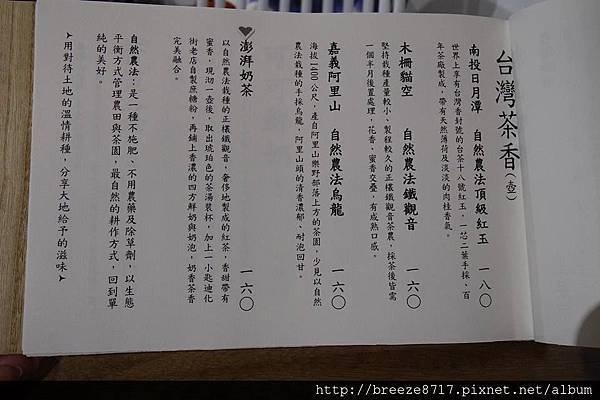 台灣茶香(壺)
南投日月潭 自然農法頂級紅玉 一八〇
世界上享有台灣香封號的台茶十八號紅玉,一芯二葉手採、百
年茶廠製成,帶有天然薄荷及淡淡的肉桂香氣。
木柵貓空 自然農法鐵觀音 一六〇
堅持栽種產量較小、製程較久的正欉鐵觀音茶農,採茶後皆需
一個半月後置處理,花香、蜜香交疊,有成熟口感。
嘉義阿里山 自然農法烏龍 一六〇
海拔一二〇〇公尺,產自阿里山樂野部落上方的茶園,少見以自然
農法栽種的手採烏龍,阿里山頭的清香濃郁、耐泡回甘。
澎湃奶茶 一六〇
以自然農法栽種的正欉鐵觀音,奢侈地製成的紅茶,香甜帶有
蜜香,現沏一壺後,取出琥珀色的茶湯裝杯,加上一小匙迪化
街老店自製蔗糖粉,再鋪上香濃的四方鮮奶與奶泡,奶香茶香
完美融合。
自然農法:是一種不施肥、不用農藥及除草劑,以生態
平衡方式管理農田與茶園,最自然的耕作方式,回到單
純的美好。
用對待土地的溫情耕種,分享大地給予的滋味
http://breeze8717.pixnet.net/album